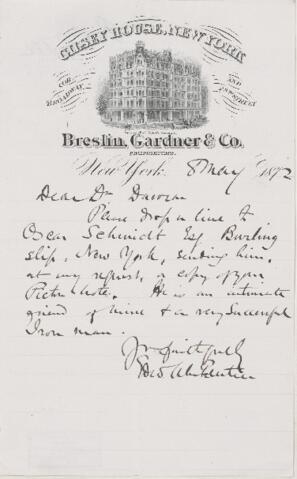 GILSEY HOUSE, NEW YORK
COR. BROADWAY AND 29TH STREET
Breslin, Gardner & Co.
PROPRIETORS.
New York. 8 May 1872
Dear Dr
Please drop a line to
Oscar Schmidt Esq Burling
slip, New York, sending him,
at my request, a copy of your
He is an intimate
friend of mine & a very successful
Iron man.
Yrs faithfully